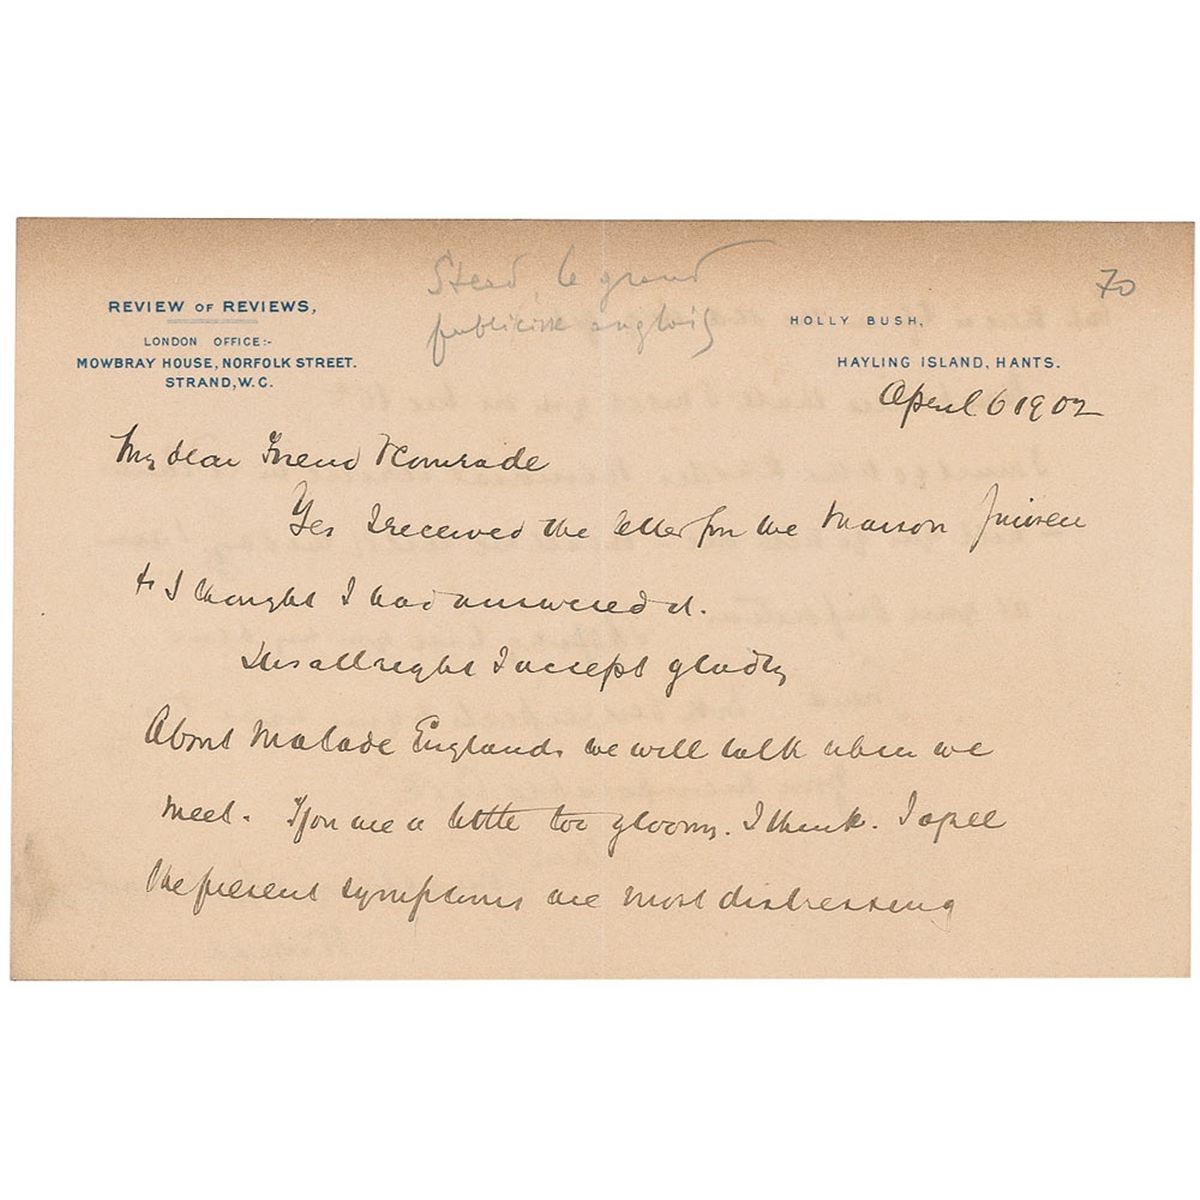 Stead, le grand
publiciste anglais
70
REVIEW OF REVIEWS,
LONDON OFFICE:-
MOWBRAY HOUSE, NORFOLK STREET.
STRAND, W.C.
HOLLY BUSH,
HAYLING ISLAND, HANTS.
April 6 1902
My dear Friend & Comrade
Yes I received the letter from the Maison
& I thought I had answered it.
It is all right I accept gladly
About Malade England we will talk when we
meet. You are a little too gloomy. I think. I agree
the present symptoms are most distressing